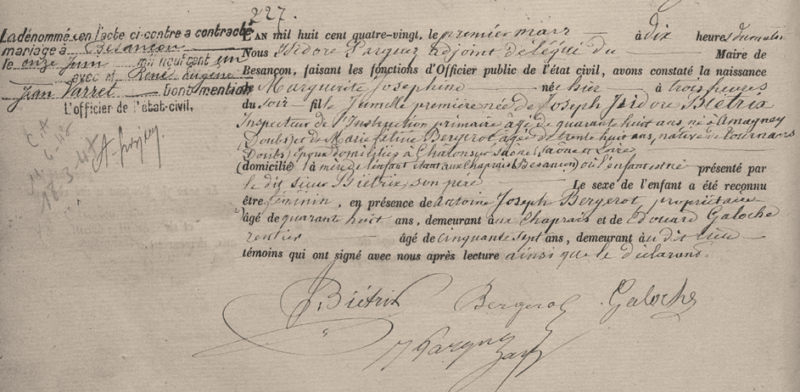 227.
La dénommée en l'acte ci-contre a contracté
mariage à Besançon
le onze juin mil neuf cent un
avec et René Eugène
Jean Parret Dont mention
L'officier de l'état-civil,
L'AN mil huit cent quatre-vingt, le premier mars à dix heures du matin
Nous Isidore Parguez adjoint délégué du Maire de
Besançon, faisant les fonctions d'Officier public de l'état civil, avons constaté la naissance
de Marguerite Joséphine née hier à trois heures
du soir fille jumelle première née de Joseph Isidore Biétrix
Inspecteur de l'Instruction primaire âgé de quarante huit ans, né à Amagney
(Doubs) et de Marie Bergerot âgée de trente huit ans, native de Tournans
(Doubs) époux domiciliés à Châlon sur Saône (Saône et Loire)
(domicilié la mère de l'enfant étant aux Chaprais Besançon) où l'enfant est né présenté par
le dit sieur Biétrix, son père Le sexe de l'enfant a été reconnu
être féminin, en présence de Antoine Joseph Bergerot, propriétaire
âgé de quarante huit ans, demeurant aux Chaprais et de Edouard Galoche
rentier âgé de cinquante sept ans, demeurant au dit lieu
témoins qui ont signé avec nous après lecture ainsi que le déclarant.
Biétrix Bergerot Galoche